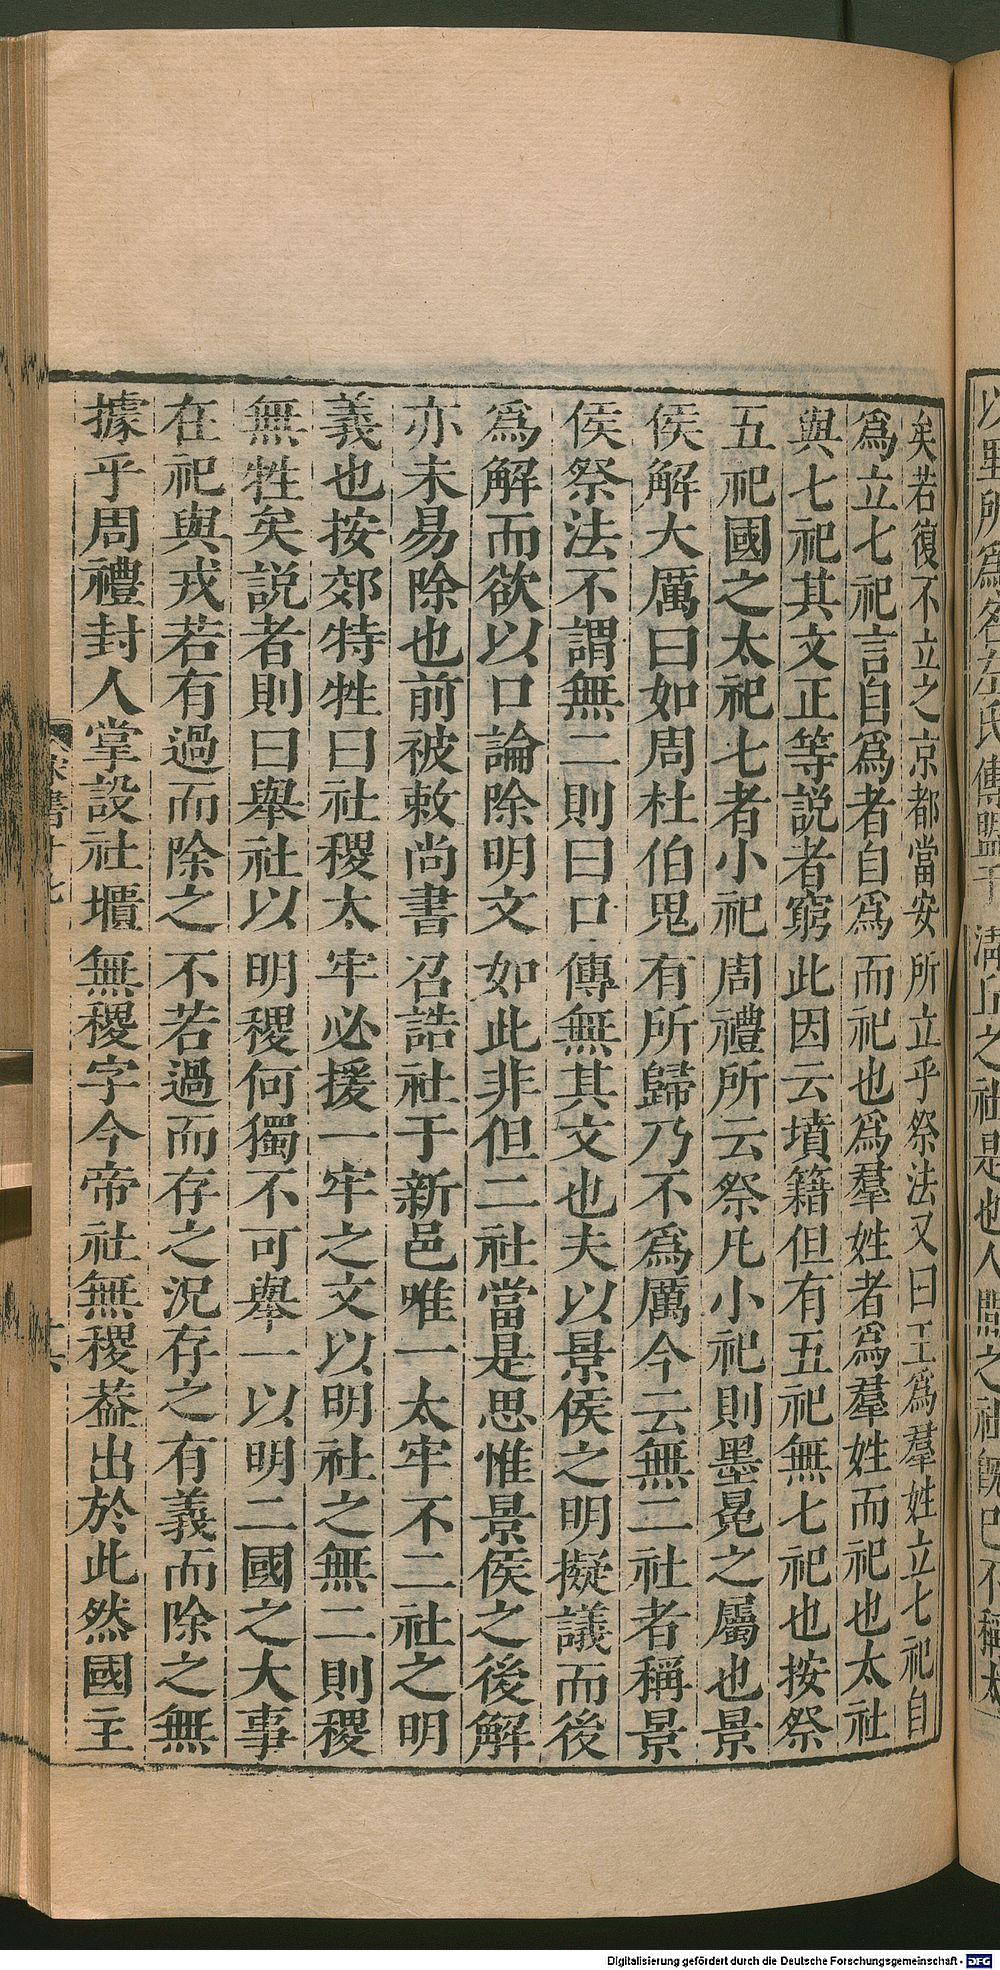 以里所爲名左氏傳盟于清丘之社是也人閒之社旣已不稱太
矣若復不立之京都當安所立乎祭法又曰王爲羣姓立七祀自
爲立七祀言自爲者自爲而祀也爲羣姓者爲羣姓而祀也太社
與七祀其文正等説者窮此因云墳籍但有五祀無七祀也按祭
五祀國之太祀七者小祀周禮所云祭凡小祀則墨冕之屬也景
侯解大厲曰如周杜伯鬼有所歸乃不爲厲今云無二社者稱景
侯祭法不謂無二則曰口傳無其文也夫以景侯之明擬議而後
爲解而欲以口論除明文如此非但二社當是思惟景侯之後解
亦未易除也前被敕尚書召誥社于新邑唯一太牢不二社之明
義也按郊特牲曰社稷太牢必援一牢之文以明社之無二則稷
無牲矣説者則曰舉社以明稷何獨不可舉一以明二國之大事
在祀與戎若有過而除之不若過而存之況存之有義而除之無
據乎周禮封人掌設社壝無稷字今帝社無稷葢出於此然國主
宋書十七
Digitalisierung gefördert durch die Deutsche Forschungsgemeinschaft - DFG